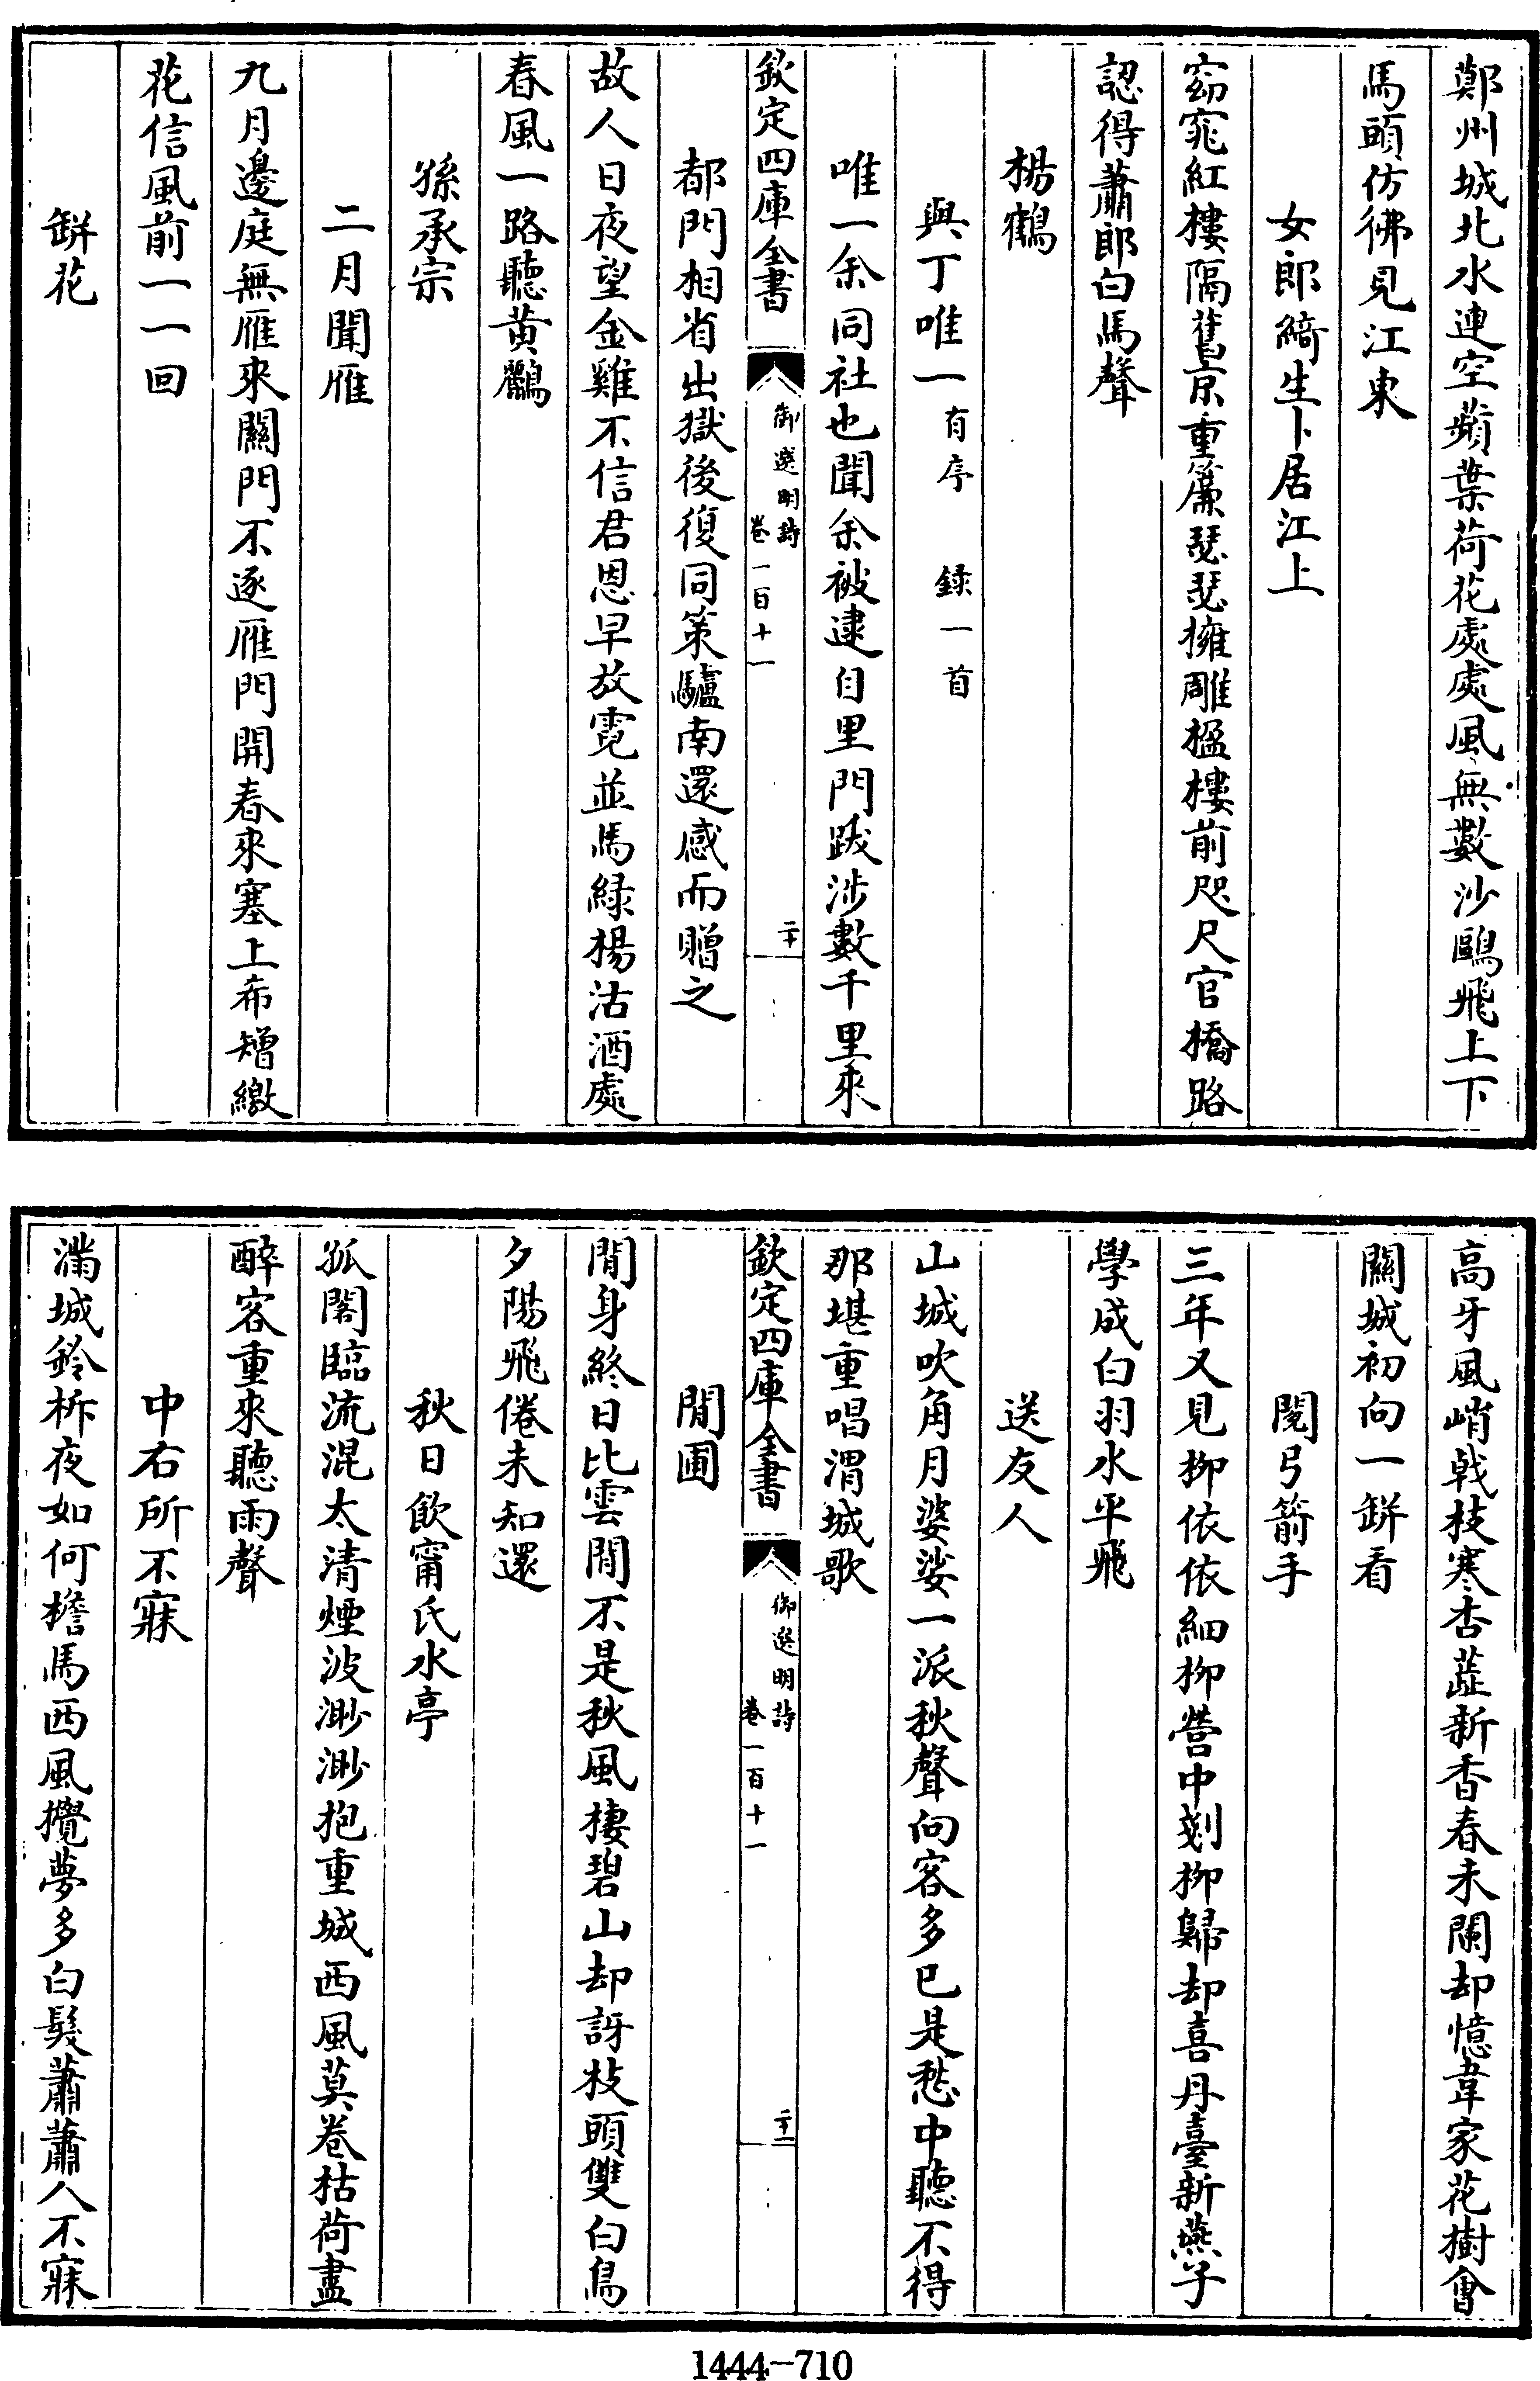 鄭州城北水連空蘋葉荷花處處風無數沙鷗飛上下
馬頭仿彿見江東
女郎綺生卜居江上
窈窕紅樓隔舊京重簾瑟瑟擁雕楹樓前咫尺官橋路
認得蕭郎白馬聲
楊鶴
與丁唯一有序 録一首
唯一余同社也聞余被逮自里門跋涉數千里來
欽定四庫全書
御選明詩
卷一百十一
二十
都門相省出獄後復同策驢南還感而贈之
故人日夜望金雞不信君恩早放霓並馬緑楊沽酒處
春風一路聽黄鸝
孫承宗
二月聞雁
九月邊庭無雁來關門不逐雁門開春來塞上希矰繳
花信風前一一回
缾花
高牙風峭戟枝寒杏蘂新香春未闌却憶韋家花樹會
關城初向一缾看
閲弓箭手
三年又見栁依依細栁營中剗栁歸却喜丹臺新燕子
學成白羽水平飛
送友人
山城吹角月婆娑一派秋聲向客多已是愁中聽不得
那堪重唱渭城歌
欽定四庫全書
御選明詩
卷一百十一
二十一
閒圃
閒身終日比雲閒不是秋風棲碧山却訝枝頭雙白鳥
夕陽飛倦未知還
秋日飲甯氏水亭
孤閣臨流混太清煙波渺渺抱重城西風莫卷枯荷盡
醉客重來聽雨聲
中右所不寐
滿城鈴柝夜如何擔馬西風攪夢多白髮蕭蕭人不寐
1444-710